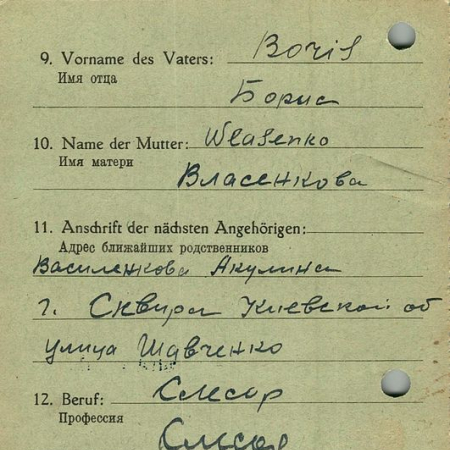 9. Vorname des Vaters: Boris
Имя отца
Борис
10. Name der Mutter: Wlasenko
Имя матери
Власенкова
11. Anschrift der nächsten Angehörigen:
Адрес ближайших родственников
Василенкова Акулина
г. Сквира Киевской об
улица Шавченко
12. Beruf: Слесар
Профессия
Слесар